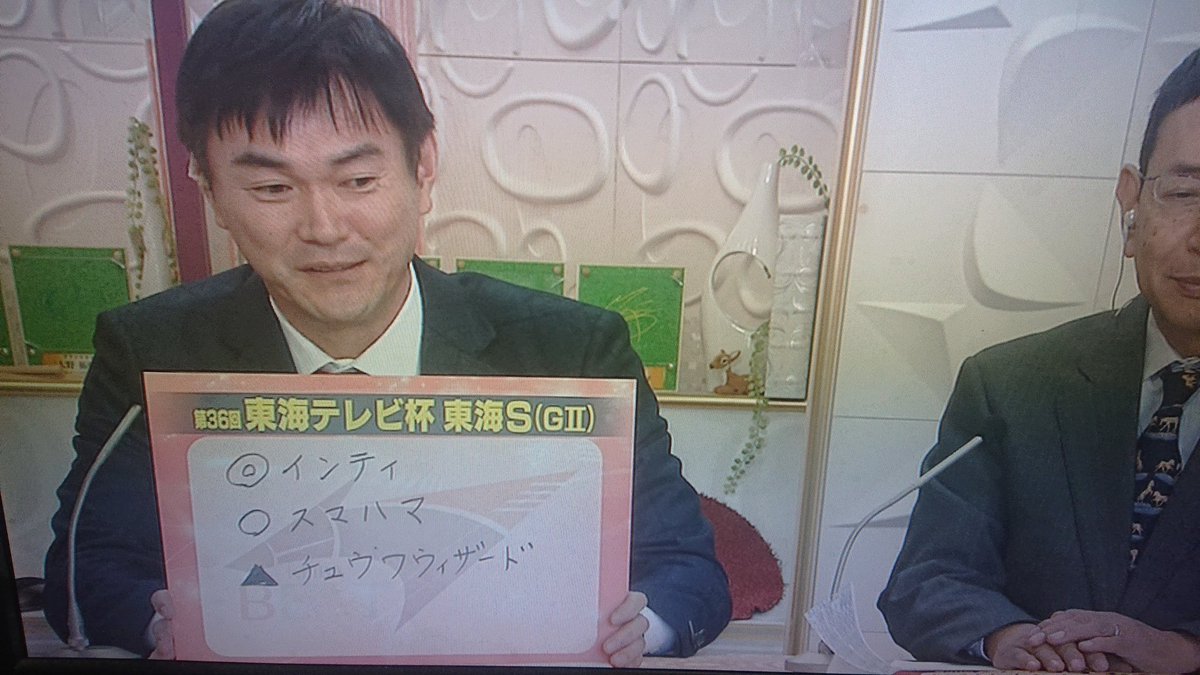 第36回 東海テレビ杯 東海S(GⅡ)
◎ インティ
○ スマハマ
▲ チュウワウィザード